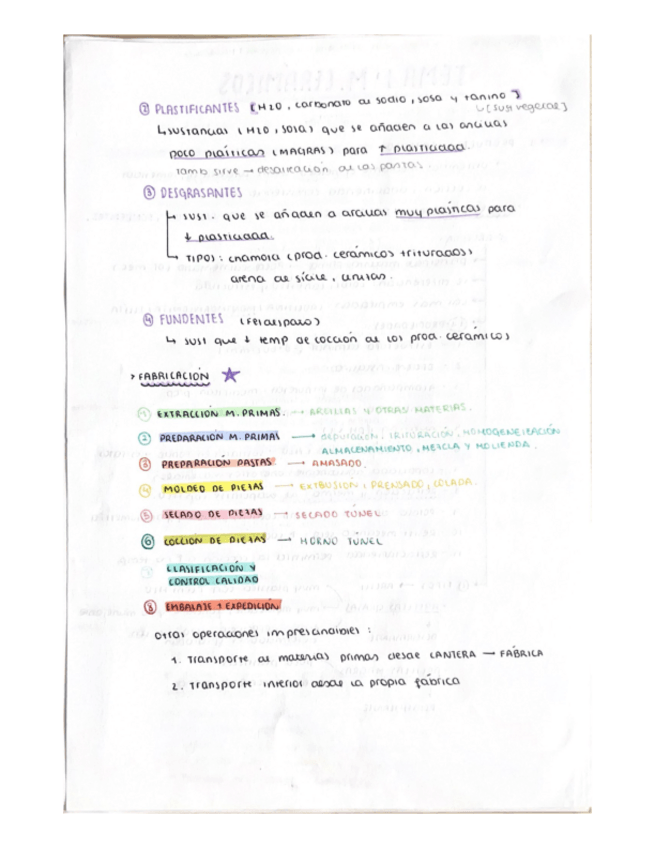 ② PLASTIFICANTES (H2O, carbonato de sodio, sosa y tanino)
↳(sust vegetal)
↳ sustancias (H2O, SOSA) que se añaden a las arcillas
poco plásticas (MAGRAS) para ↑ plasticidad.
tamb sirve → desaireación de las pastas
③ DESGRASANTES
↳ sust. que se añaden a arcillas muy plásticas para
↓ plasticidad.
↳ TIPOS: chamota (prod. cerámicos triturados),
arena de sílice, cenizas.
④ FUNDENTES (Feldespato)
↳ sust que ↓ temp de cocción de los prod. cerámicos
> FABRICACIÓN ★
① EXTRACCIÓN M. PRIMAS. → ARCILLAS Y OTRAS MATERIAS.
② PREPARACIÓN M. PRIMAS → DEPURACIÓN, TRITURACIÓN, HOMOGENEIZACIÓN
ALMACENAMIENTO, MEZCLA Y MOLIENDA.
③ PREPARACIÓN PASTAS → AMASADO.
④ MOLDEO DE PIEZAS → EXTRUSIÓN, PRENSADO, COLADA.
⑤ SECADO DE PIEZAS → SECADO TÚNEL
⑥ COCCIÓN DE PIEZAS → HORNO TUNEL
⑦ CLASIFICACIÓN Y
CONTROL CALIDAD
⑧ EMBALAJE Y EXPEDICIÓN
Otras operaciones imprescindibles:
1. Transporte de materias primas desde CANTERA → FÁBRICA
2. Transporte interior desde la propia fábrica